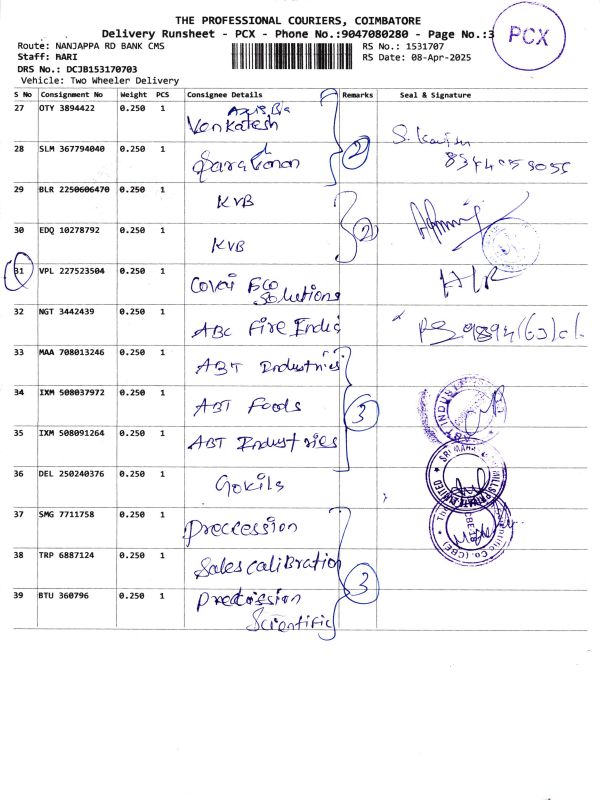 THE PROFESSIONAL COURIERS, COIMBATORE
Delivery Runsheet - PCX - Phone No.:9047080280 - Page No.:3
PCX
Route: NANJAPPA RD BANK CMS
RS No.: 1531707
Staff: HARI
RS Date: 08-Apr-2025
DRS No.: DCJB153170703
Vehicle: Two Wheeler Delivery
S No Consignment No Weight PCS Consignee Details Remarks Seal & Signature
27 OTY 3894422 0.250 1 Venkatesh
28 SLM 367794040 0.250 1 2
29 BLR 2250606470 0.250 1 KVB
30 EDQ 10278792 0.250 1 KVB 2
31 VPL 227523504 0.250 1 Covai Eco Solutions
32 NGT 3442439 0.250 1 ABC Fire India
33 MAA 708013246 0.250 1 ABT Industries
34 IXM 508037972 0.250 1 ABT Foods 3
35 IXM 508091264 0.250 1 ABT Industries
36 DEL 250240376 0.250 1 Gokils
37 SMG 7711758 0.250 1 Preccession
38 TRP 6887124 0.250 1 Sales calibration 3
39 BTU 360796 0.250 1 Scientific